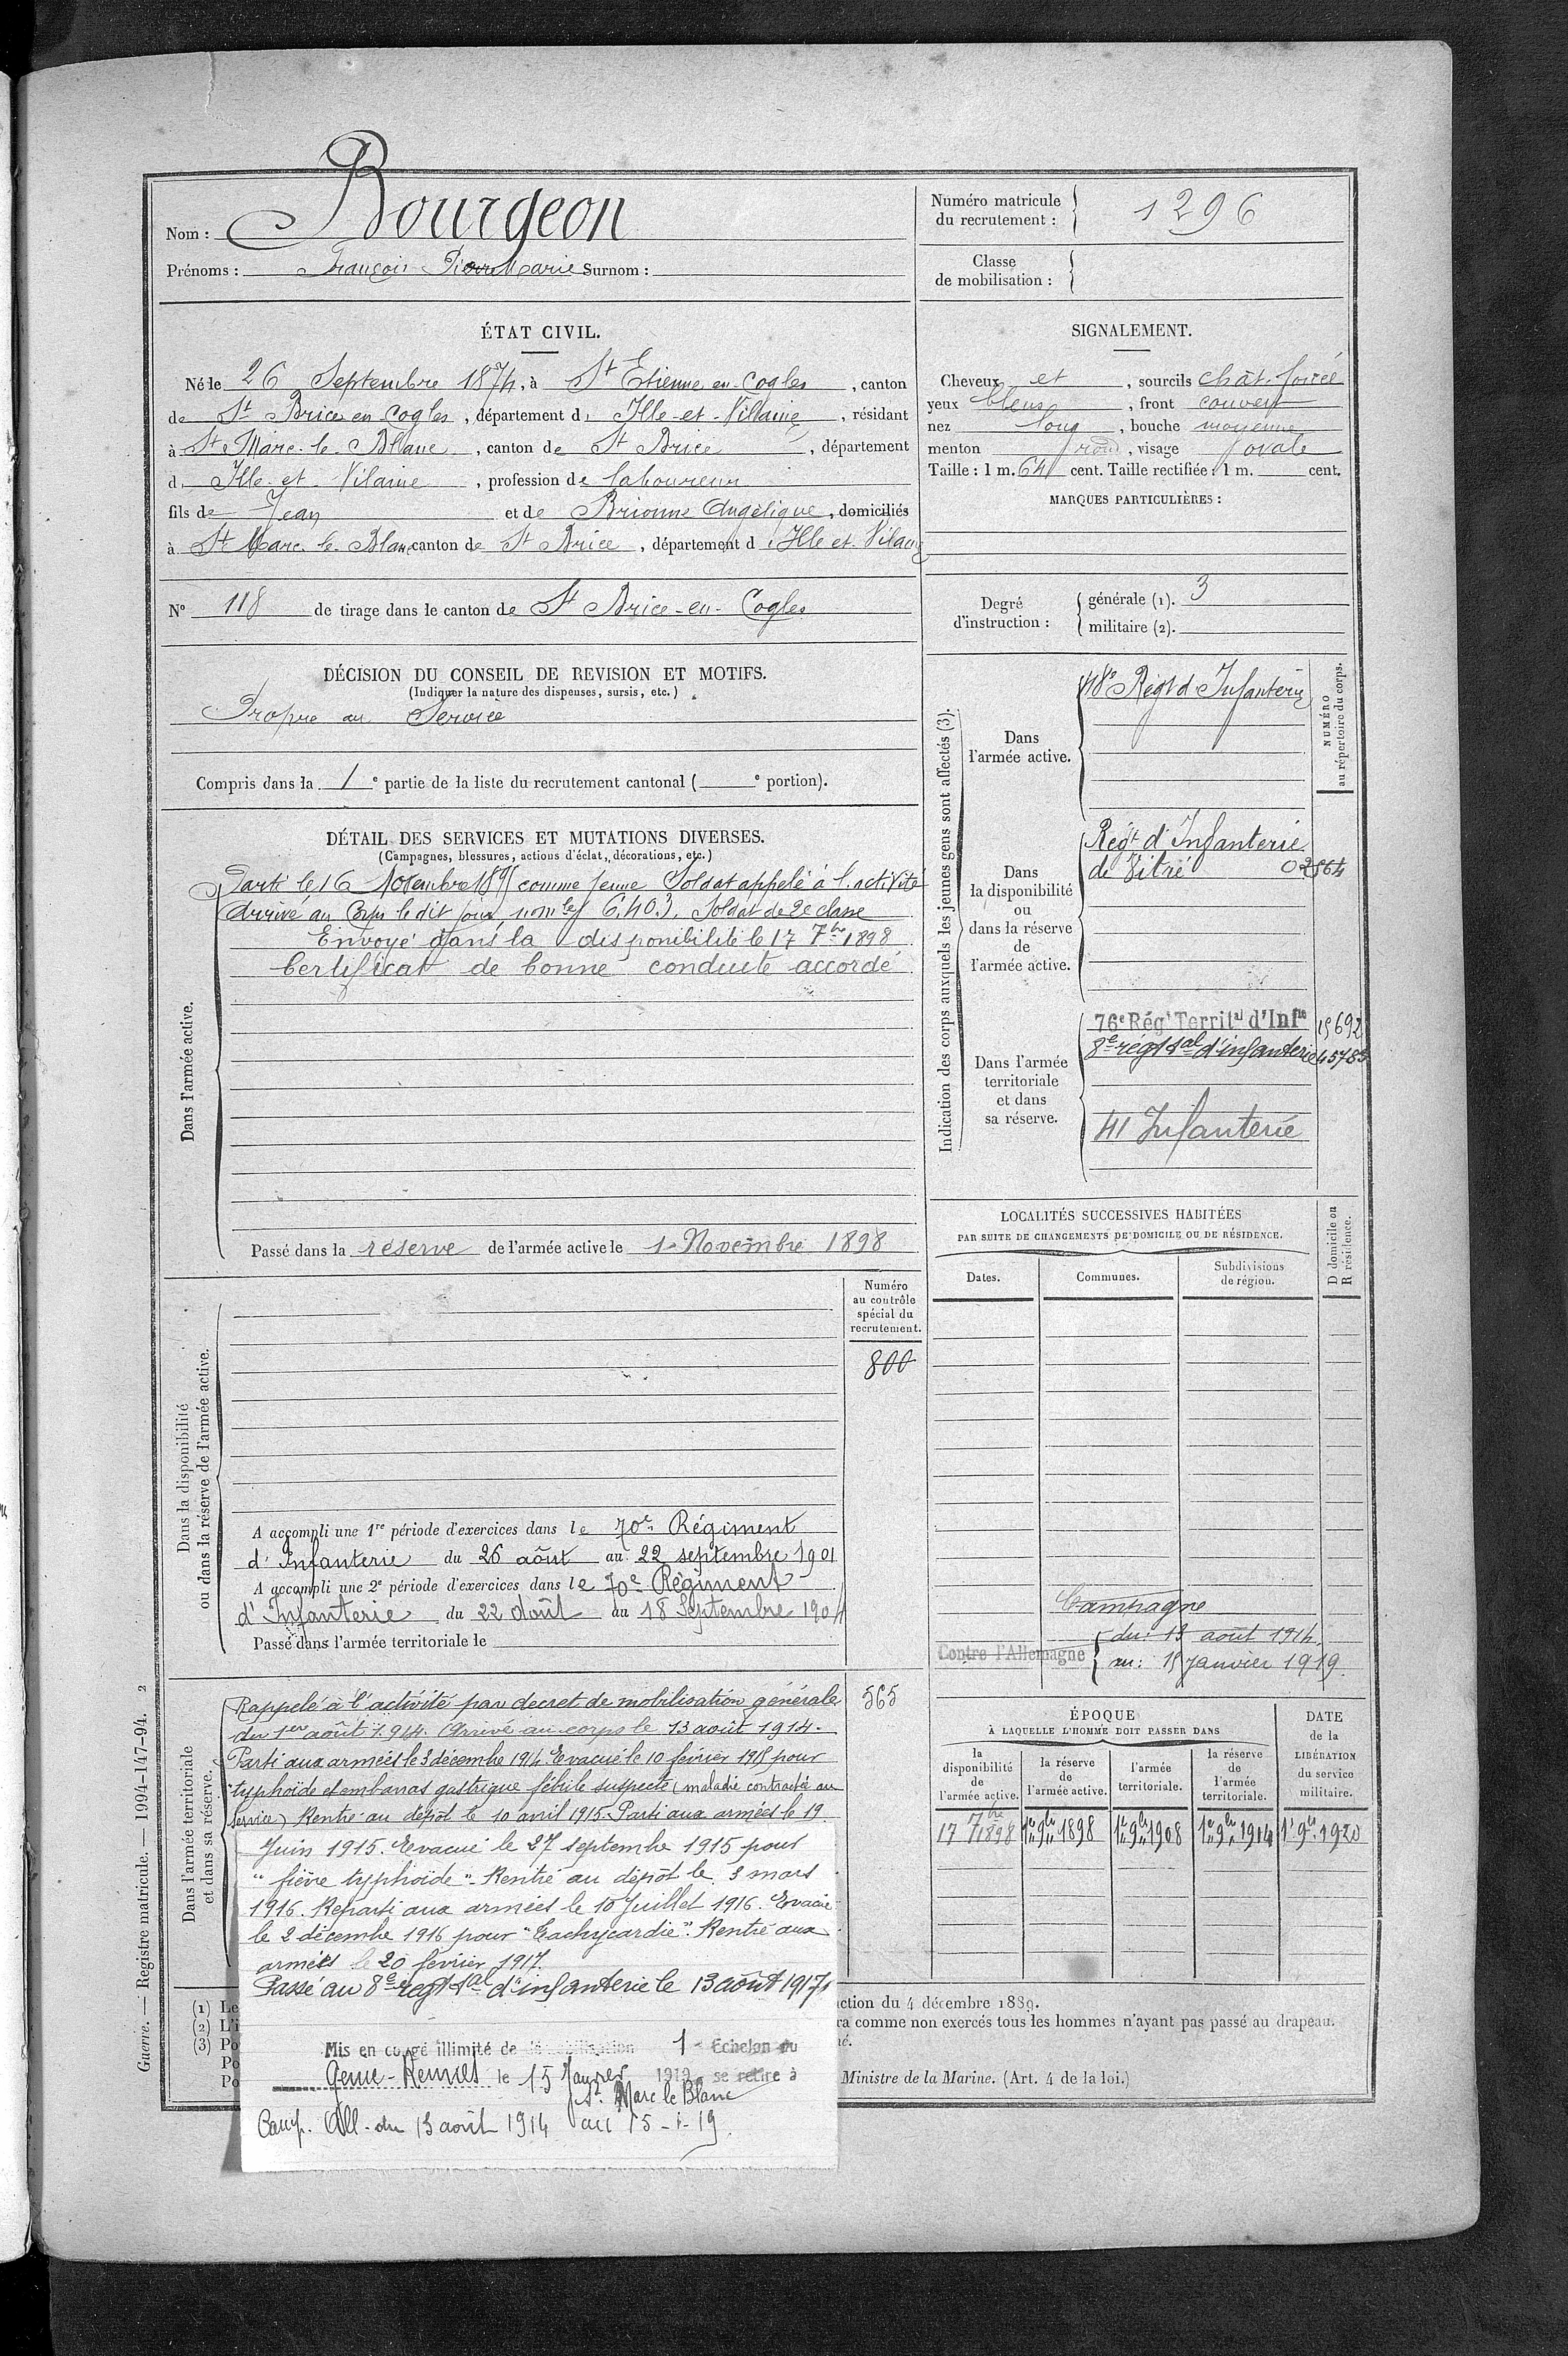 Nom : Bourgeon
Prénoms : François Pierre Marie Surnom :
Numéro matricule
du recrutement : 1296
Classe
de mobilisation :
ÉTAT CIVIL.
Né le 26 Septembre 1874, à St Etienne en Cogles, canton
de St Brice en Cogles, département d Ille-et-Vilaine, résidant
à St Marc-le-Blanc, canton de St Brice, département
d Ille-et-Vilaine, profession de laboureur
fils de Jean et de Brionne Angélique, domiciliés
à St Marc-le-Blanc canton de St Brice, département d Ille et Vilaine
N° 118 de tirage dans le canton de St Brice-en-Cogles
SIGNALEMENT.
Cheveux et, sourcils chât. foncé
yeux bleus, front couvert
nez long, bouche moyenne
menton rond, visage ovale
Taille : 1 m. 64 cent. Taille rectifiée : 1 m. cent.
MARQUES PARTICULIÈRES :
Degré
d'instruction :
générale (1). 3
militaire (2).
DÉCISION DU CONSEIL DE REVISION ET MOTIFS.
(Indiquer la nature des dispenses, sursis, etc.)
Propre au Service
Compris dans la 1e partie de la liste du recrutement cantonal ( e portion).
DÉTAIL DES SERVICES ET MUTATIONS DIVERSES.
(Campagnes, blessures, actions d'éclat, décorations, etc.)
Dans l'armée active.
Parti le 16 Novembre 1895 comme jeune Soldat appelé à l'activité
Arrivé au Corps le dit jour, 6,403. Soldat de 2e classe
Envoyé dans la disponibilité le 17 7bre 1898
Certificat de bonne conduite accordé
Passé dans la réserve de l'armée active le 1er Novembre 1898
Indication des corps auxquels les jeunes gens sont affectés (3).
NUMÉRO
au répertoire du corps.
Dans
l'armée active.
48e Régt d Infanterie
Dans
la disponibilité
ou
dans la réserve
de
l'armée active.
Régt d'Infanterie
de Vitré 02564
Dans l'armée
territoriale
et dans
sa réserve.
76e Régt Territal d'Infie 15692
8e régt tal d'infanterie 45783
41 Infanterie
LOCALITÉS SUCCESSIVES HABITÉES
PAR SUITE DE CHANGEMENTS DE DOMICILE OU DE RÉSIDENCE.
D domicile ou
R résidence.
Dates.
Communes.
Subdivisions
de région.
Campagne
Contre l'Allemagne
du : 13 août 1914
au : 15 janvier 1919.
Dans la disponibilité
ou dans la réserve de l'armée active.
Numéro
au contrôle
spécial du
recrutement.
800
A accompli une 1re période d'exercices dans le 70e Régiment
d'Infanterie du 26 août au 22 septembre 1901
A accompli une 2e période d'exercices dans le 70e Régiment
d'Infanterie du 22 août au 18 Septembre 1904
Passé dans l'armée territoriale le
Dans l'armée territoriale
et dans sa réserve.
565
Rappelé à l'activité par decret de mobilisation générale
du 1er août 1914. Arrivé au corps le 13 août 1914.
Parti aux armées le 3 décembre 1914 Evacué le 10 février 1915 pour
"typhoïde et embarras gastrique fébrile suspecte (maladie contractée au
service) Rentré au dépôt le 10 avril 1915. Parti aux armées le 19
Juin 1915. Evacué le 27 septembre 1915 pour
"fièvre typhoïde". Rentré au dépôt le 3 mars
1916. Reparti aux armées le 10 Juillet 1916. Evacué
le 2 décembre 1916 pour "Tachycardie". Rentré aux
armées le 20 février 1917.
Passé au 8e régt tal d'infanterie le 13 août 1917
Mis en congé illimité de démobilisation 1er Echelon du
Génie-Rennes le 15 Janvier 1919, se retire à
St Marc le Blanc
Camp. All. du 13 août 1914 au 15-1-19.
ÉPOQUE
À LAQUELLE L'HOMME DOIT PASSER DANS
la
disponibilité
de
l'armée active.
la réserve
de
l'armée active.
l'armée
territoriale.
la réserve
de
l'armée
territoriale.
DATE
de la
LIBÉRATION
du service
militaire.
17 7bre 1898
1er 9bre 1898
1er 9bre 1908
1er 9bre 1914
1er 9bre 1920
(1) Le
(2) L'i
(3) Po
Po
Po
ction du 4 décembre 1889.
ra comme non exercés tous les hommes n'ayant pas passé au drapeau.
né.
Ministre de la Marine. (Art. 4 de la loi.)
Guerre. — Registre matricule. — 1994-147-94. 2